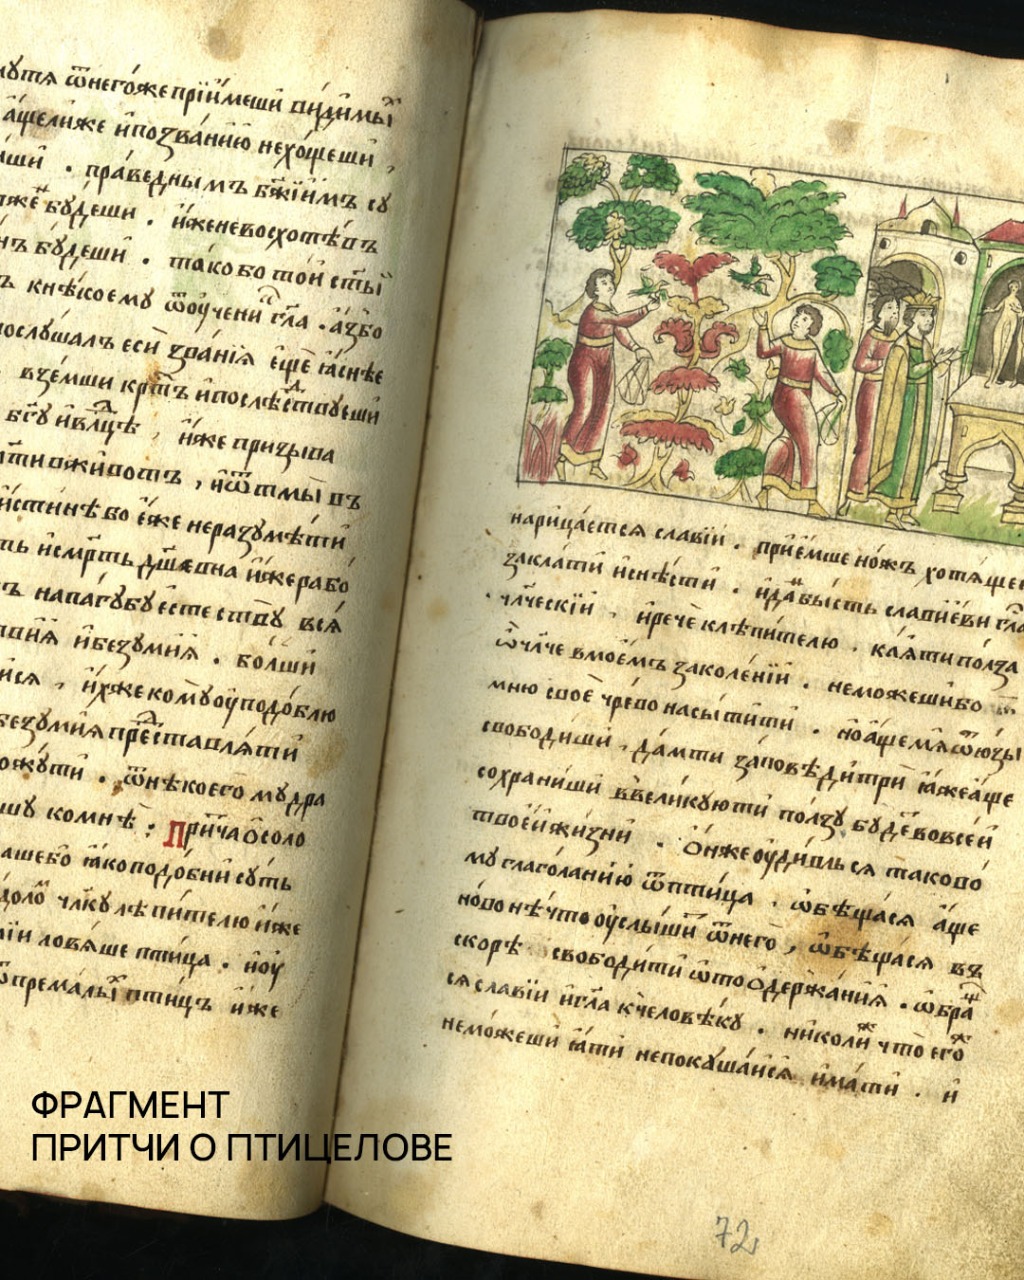 ѿнегоже прїимеши видимыӣ
аще лиже и по званїю не хощеши ,
. праведнымъ бж҃їимъ су
будеши . иже не восхотѣвъ
нъ будеши . тако бо той ст҃ый
къ нѣкоему ѿ оучени гл҃а . аще бо
послушалъ еси званїя еще яснѣе
вземши крт҃ъ и послѣдствуеши
бг҃у и влд҃цѣ , иже призыва
въ животъ , и ѿ тмы въ
истиннѣ бо еже неразумѣти
и смр҃ть дш҃евна иже рабо
на пагубу естеству вся
и безумия . болши
ися , ихже кому оуподоблю
безумия представляти
. ѿ нѣкоего мудра
ко мнѣ : Притча о соло
яко подобни суть
чл҃ку лѣпителю иже
ловяше птица . и оу
премалый птицъ иже
нарицается славїй . приемше ножъ хотяще
заклати и снѣсти . и дан бысть славїеви гла
члч҃ескїй , и рече клѣпителю . кая ти полза
ѽ члч҃е в моемъ заколенїи . не можеши бо
мною свое чрево насытити . но аще мя ѿ юзы
свободиши , дам ти заповѣди три яже аще
сохраниши в великую ти ползу будет во всей
твоей жизни . Онже оудивлься таково
му глаголанию ѿ птица . ѡбѣщася аще
ново нѣчто оуслышит ѿ него , ѡбѣщася въ
скорѣ свободити ѡто одержания . ѡбра
ся славїй и гл҃а к человѣку . николиж что его
не можеши яти не покушайся имати . и
ФРАГМЕНТ
ПРИТЧИ О ПТИЦЕЛОВЕ
72